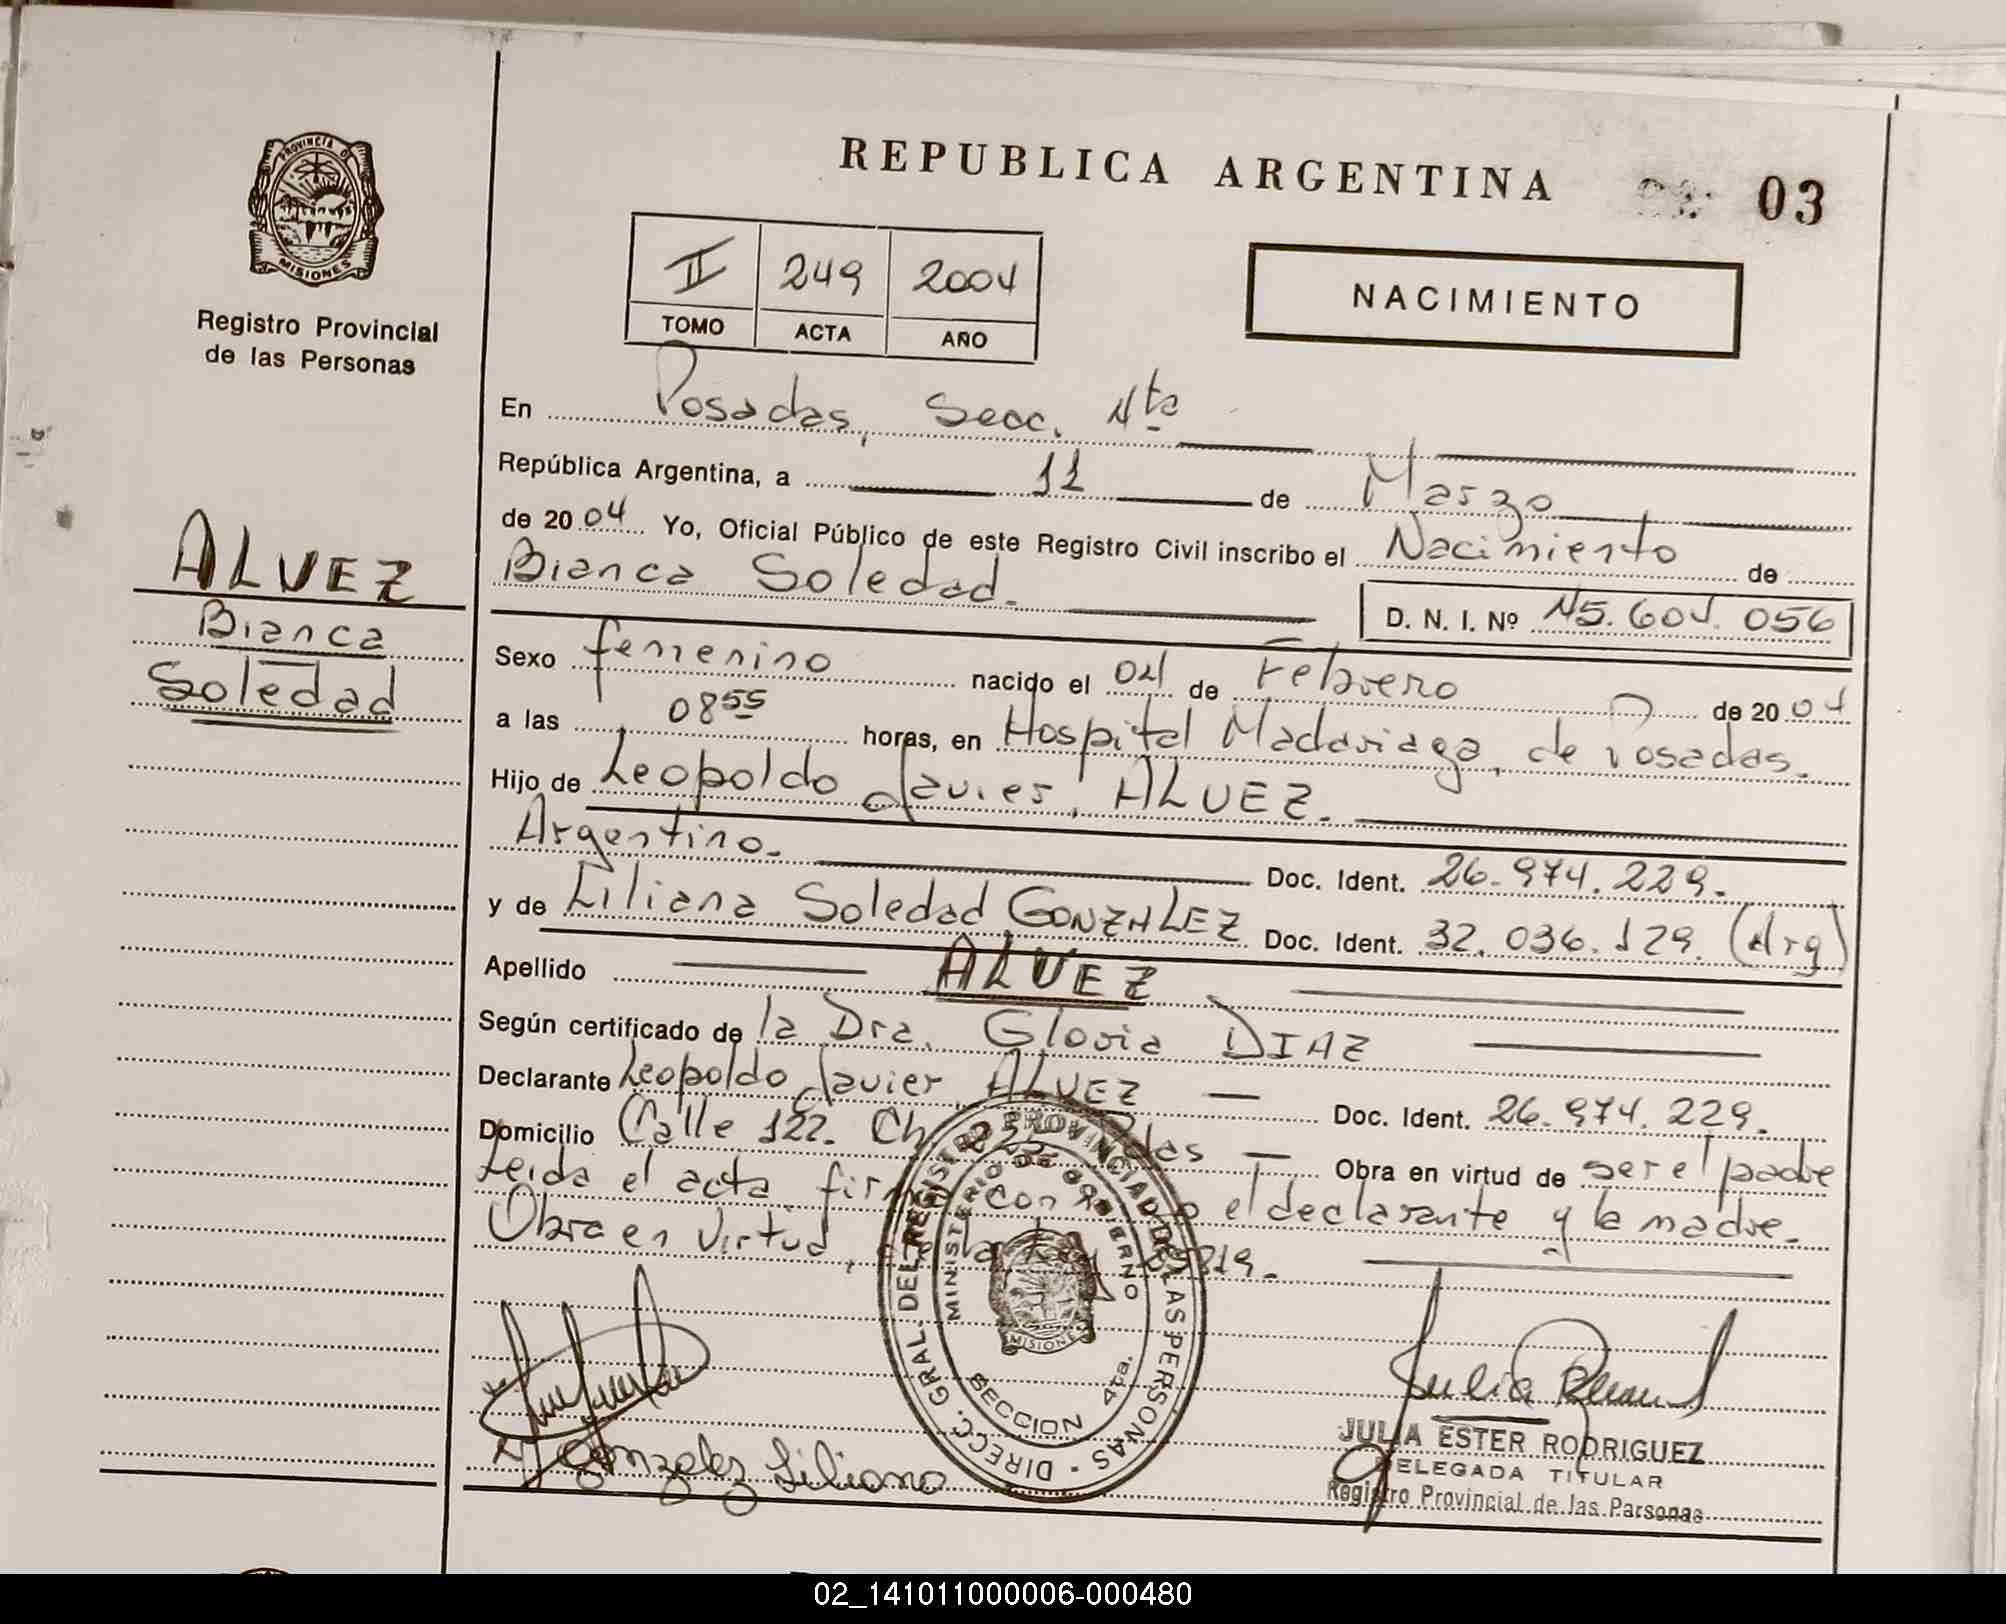 REPUBLICA ARGENTINA
03
PROVINCIA DE
MISIONES
Registro Provincial
de las Personas
II 249 2004
TOMO ACTA AÑO
NACIMIENTO
ALVEZ
Bianca
Soledad
En Posadas, Secc. 4ta
República Argentina, a 11 de Marzo
de 2004 Yo, Oficial Público de este Registro Civil inscribo el Nacimiento de
Bianca Soledad.
D. N. I. Nº 45.604.056
Sexo femenino nacido el 04 de Febrero de 2004
a las 08 55 horas, en Hospital Madariaga, de Posadas.
Hijo de Leopoldo Javier, ALVEZ.
Argentino. Doc. Ident. 26.974.229.
y de Liliana Soledad GONZALEZ Doc. Ident. 32.036.129. (Arg)
Apellido ALVEZ
Según certificado de la Dra. Gloria DIAZ
Declarante Leopoldo Javier, ALVEZ Doc. Ident. 26.974.229.
Domicilio Calle 122. Ch Obra en virtud de ser el padre
Leida el acta con el declarante y la madre.
Obra en virtud,
DIRECC. GRAL. DEL REGISTRO PROVINCIAL DE LAS PERSONAS
MINISTERIO DE GOBIERNO
MISIONES
SECCION 4ta.
Gonzalez Liliana
JULIA ESTER RODRIGUEZ
DELEGADA TITULAR
Registro Provincial de las Personas
02_141011000006-000480